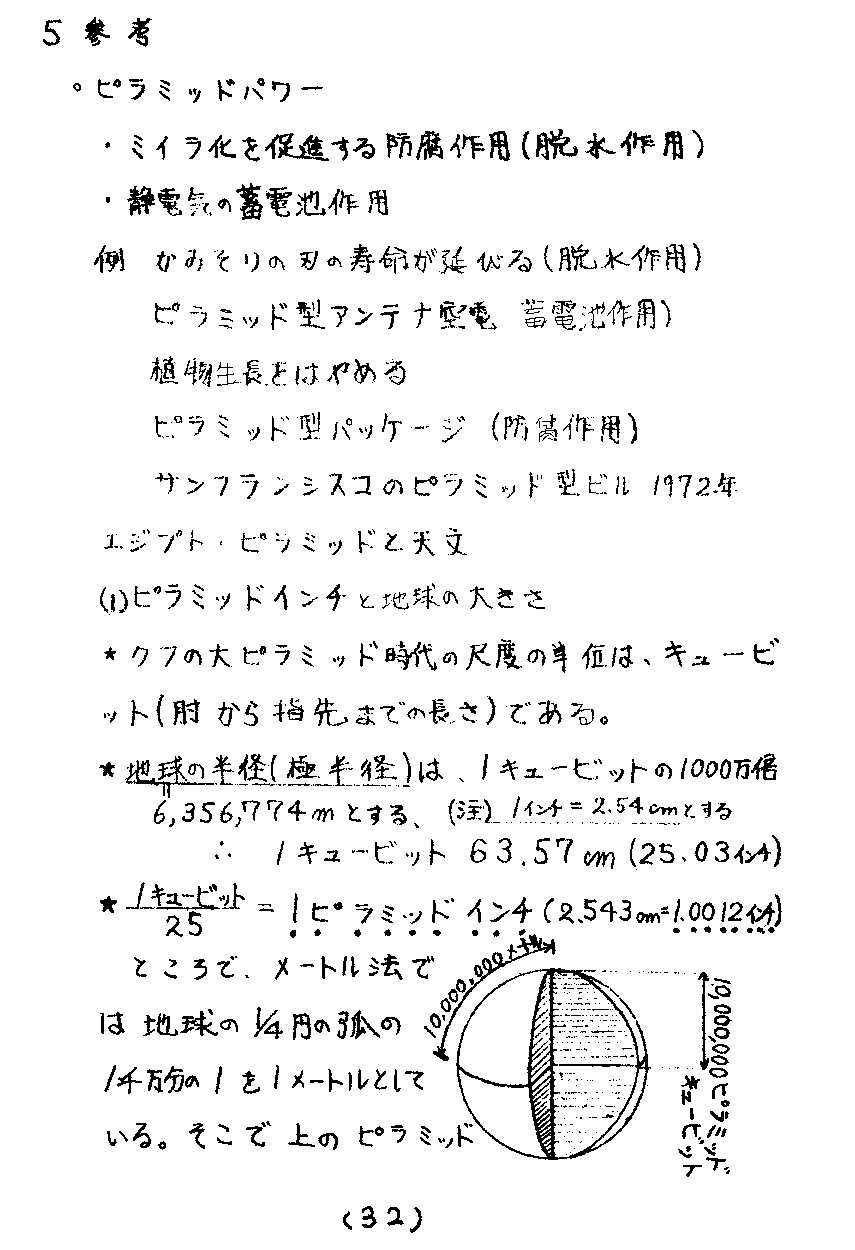 5 参考
° ピラミッドパワー
・ミイラ化を促進する防腐作用(脱水作用)
・静電気の蓄電池作用
例 かみそりの刃の寿命が延びる(脱水作用)
ピラミッド型アンテナ 蓄電池作用)
植物生長をはやめる
ピラミッド型パッケージ (防腐作用)
サンフランシスコのピラミッド型ビル 1972年
エジプト・ピラミッドと天文
(1)ピラミッドインチと地球の大きさ
★クフの大ピラミッド時代の尺度の単位は、キュービ
ット(肘から指先までの長さ)である。
★地球の半径(極半径)は、1キュービットの1000万倍
6,356,774mとする、(注) 1インチ=2.54cmとする
∴ 1キュービット 63.57cm (25.03インチ)
★ 1キュービット/25 = 1ピラミッドインチ(2.543cm=1.0012インチ)
ところで、メートル法で
は地球の1/4円の弧の
1千万分の1を1メートルとして
いる。そこで上のピラミッド
10,000,000メートル
10,000,000ピラミッド
キュービット
(32)